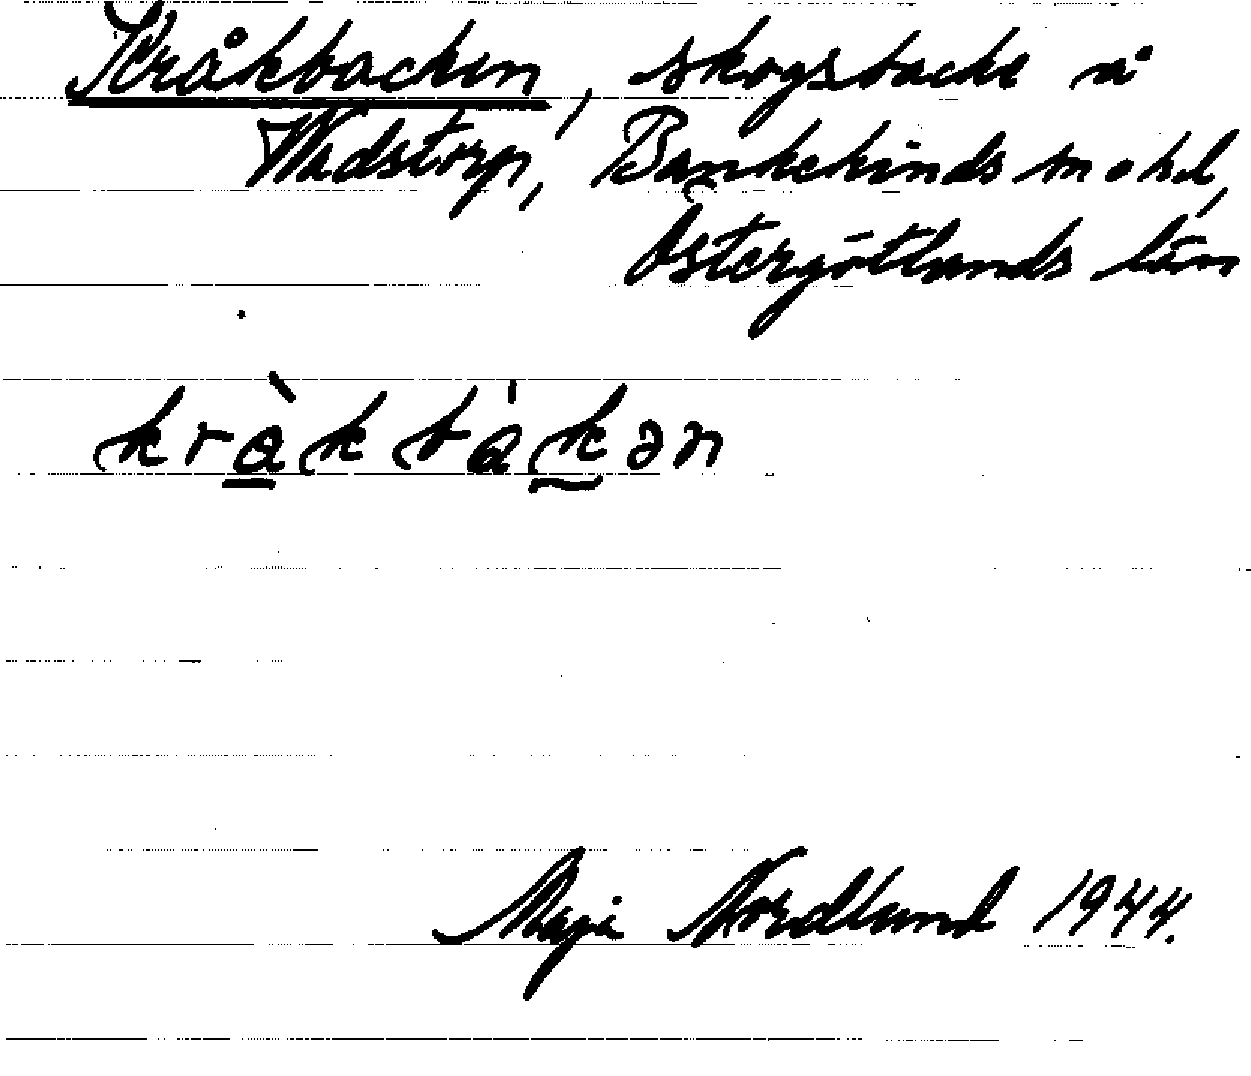 Kråkbacken, skogsbacke å
Wadstorp, Bankekinds sn o hd,
Östergötlands län
kràkbákən
Maja Nordlund 1944.